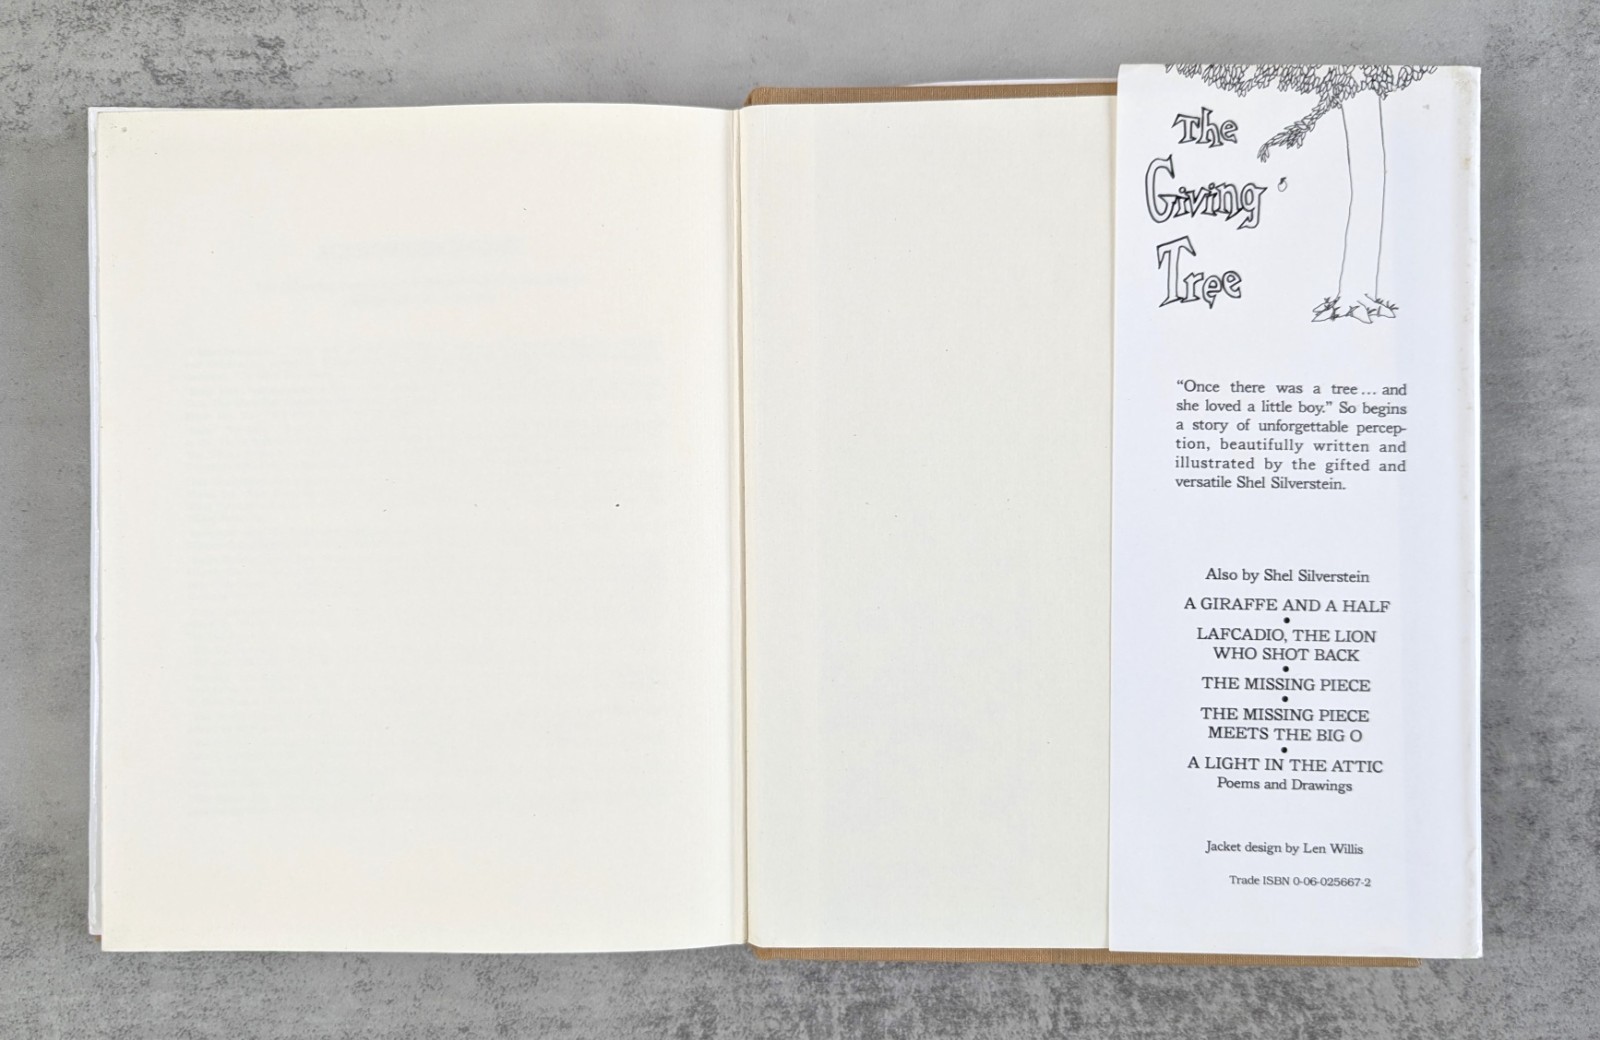 The
Giving
Tree
“Once there was a tree... and
she loved a little boy.” So begins
a story of unforgettable percep-
tion, beautifully written and
illustrated by the gifted and
versatile Shel Silverstein.
Also by Shel Silverstein
A GIRAFFE AND A HALF
•
LAFCADIO, THE LION
WHO SHOT BACK
•
THE MISSING PIECE
•
THE MISSING PIECE
MEETS THE BIG O
•
A LIGHT IN THE ATTIC
Poems and Drawings
Jacket design by Len Willis
Trade ISBN 0-06-025667-2